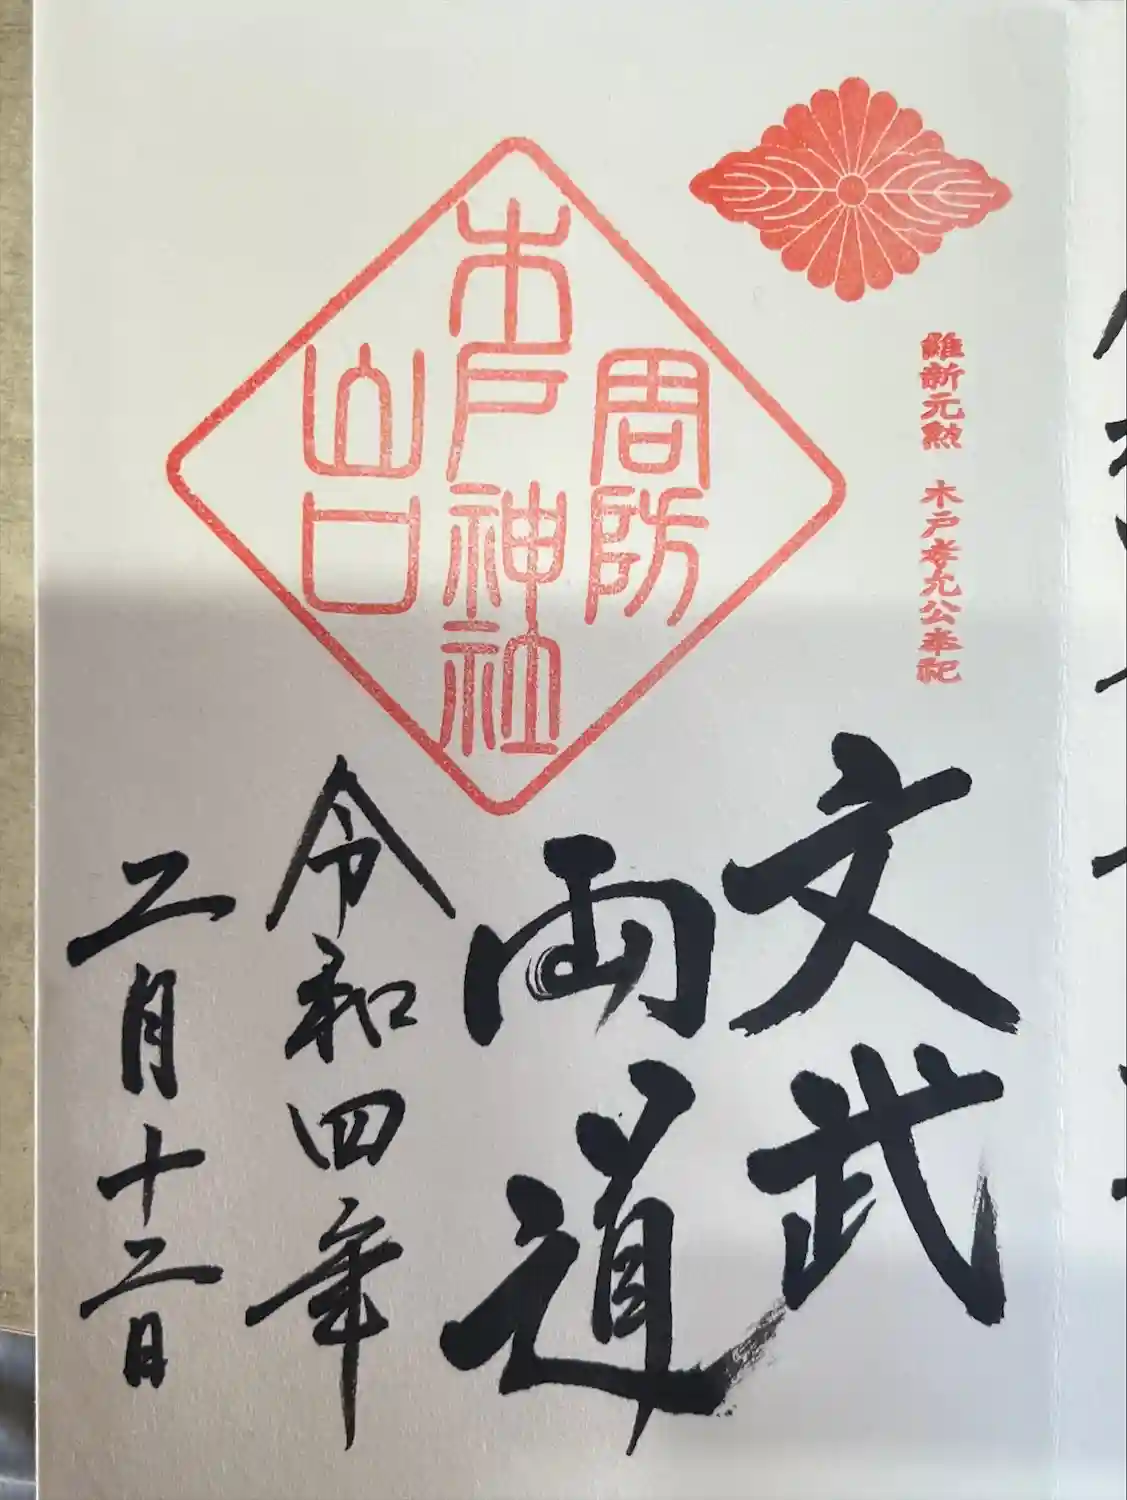 維新元勲 木戸孝允公奉祀
周防
木戸神社
山口
文武
両道
令和四年
二月十二日